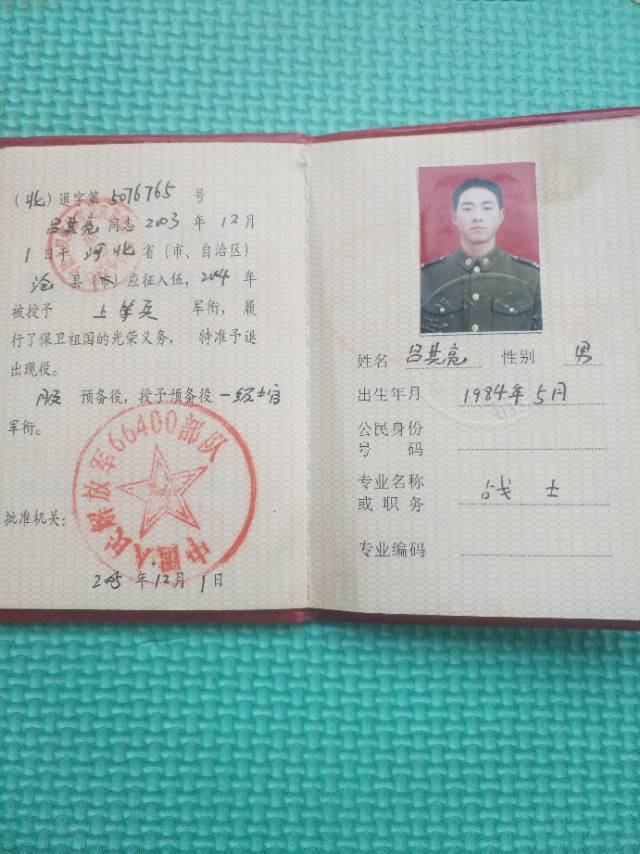 （北）退字第5076765号
吕其亮 同志 2003 年 12 月
1 日于 河北 省（市、自治区）
沧 县（市）应征入伍，2004 年
被授予 上等兵 军衔，履
行了保卫祖国的光荣义务， 特准予退
出现役。
服 预备役，授予预备役 一级士官
军衔。
中国人民解放军66400部队
批准机关：
2005 年 12 月 1 日
姓名 吕其亮 性别 男
出生年月 1984年5月
公民身份
号 码
专业名称 战 士
或 职 务
专业编码